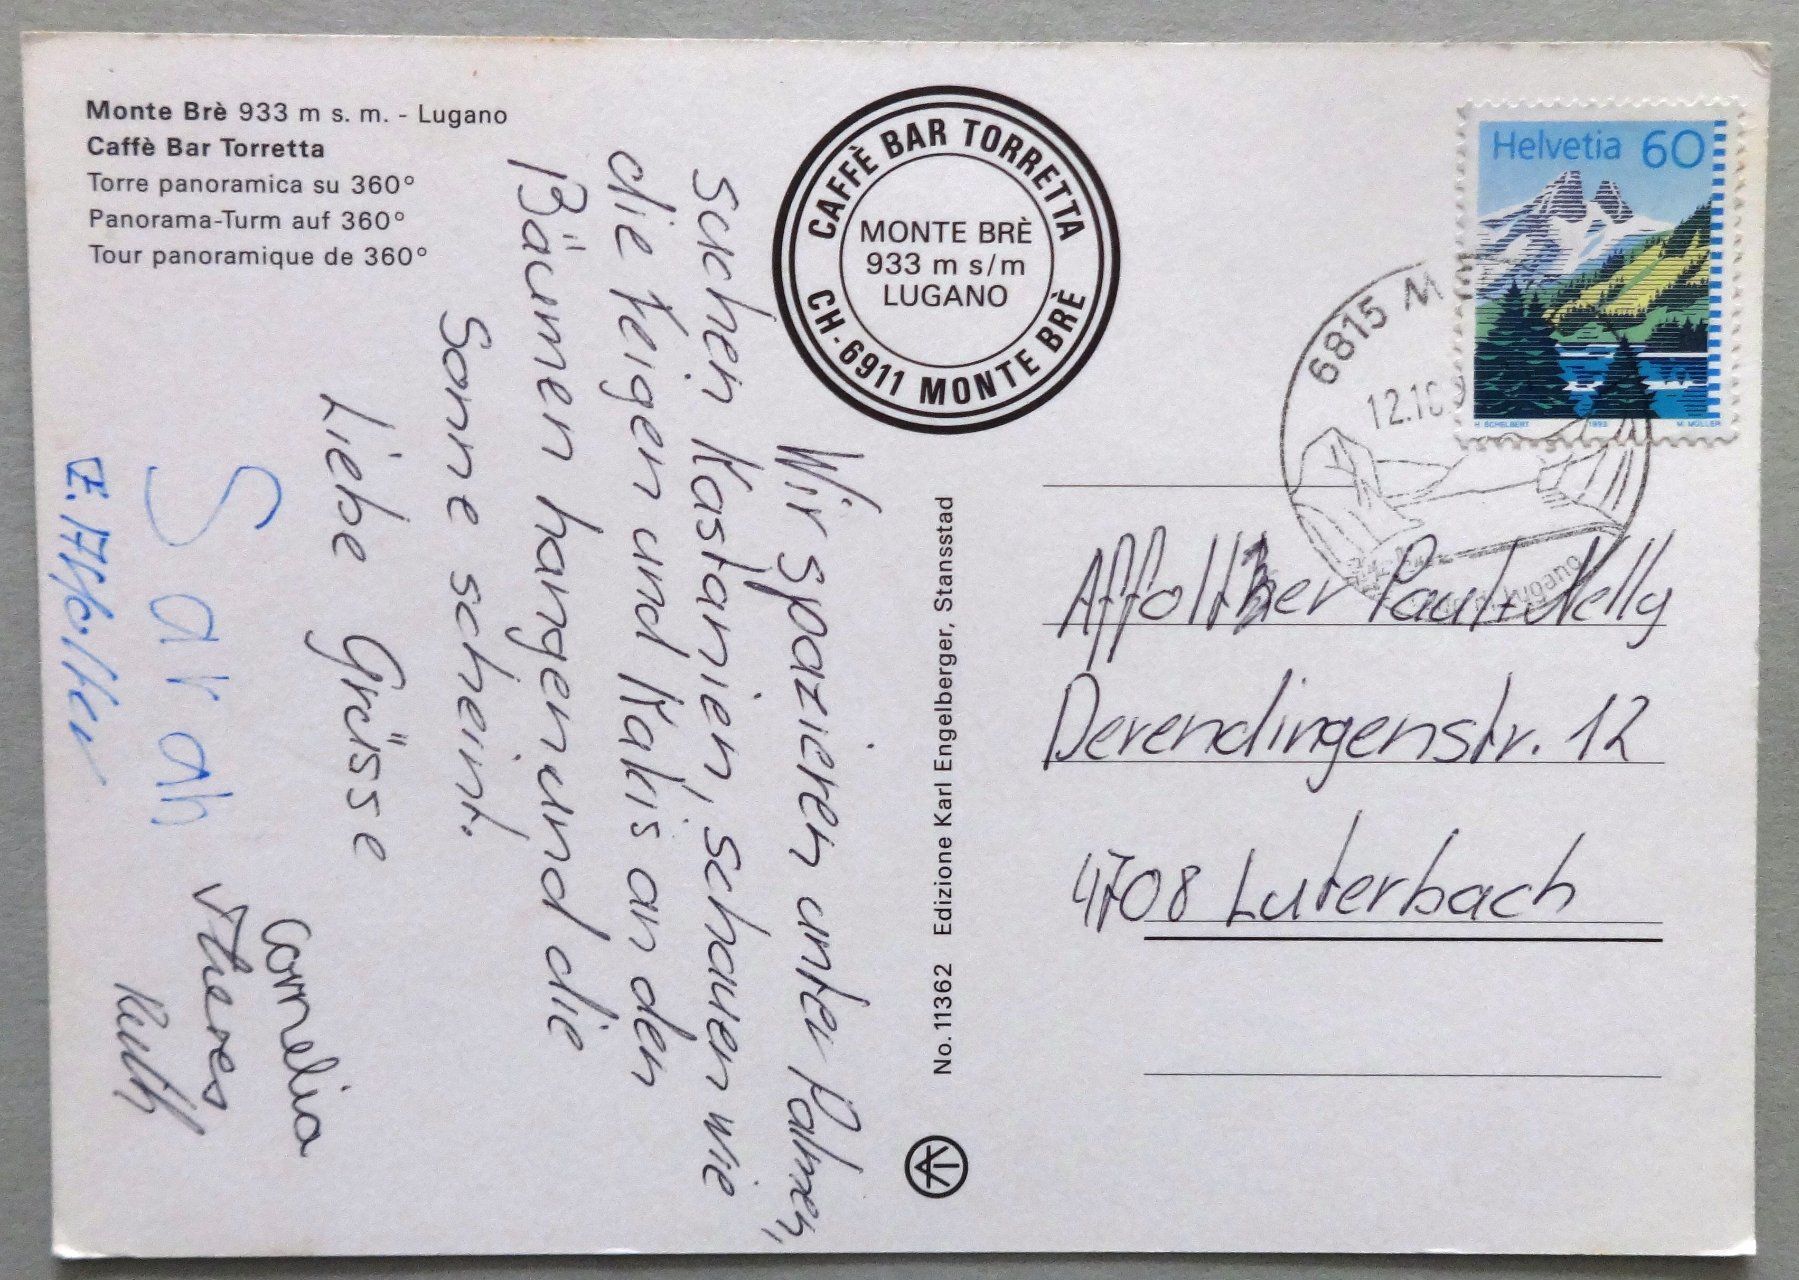 Monte Brè 933 m s. m. - Lugano
Caffè Bar Torretta
Torre panoramica su 360°
Panorama-Turm auf 360°
Tour panoramique de 360°
CAFFÈ BAR TORRETTA
MONTE BRÈ
933 m s/m
LUGANO
CH-6911 MONTE BRÈ
Helvetia 60
H. SCHELBERT 1993 M. MÜLLER
6815 M
12.10.
Lugano
Wir spazieren unter Palmen,
schen Kastanien, schauen wie
die Feigen und Kakis an den
Bäumen hangen und die
Sonne scheint.
Liebe Grüsse
Sarah
Cornelia
Theres
Ruth
No. 11362 Edizione Karl Engelberger, Stansstad
Affolter Paul + Nelly
Derendingenstr. 12
4708 Luterbach